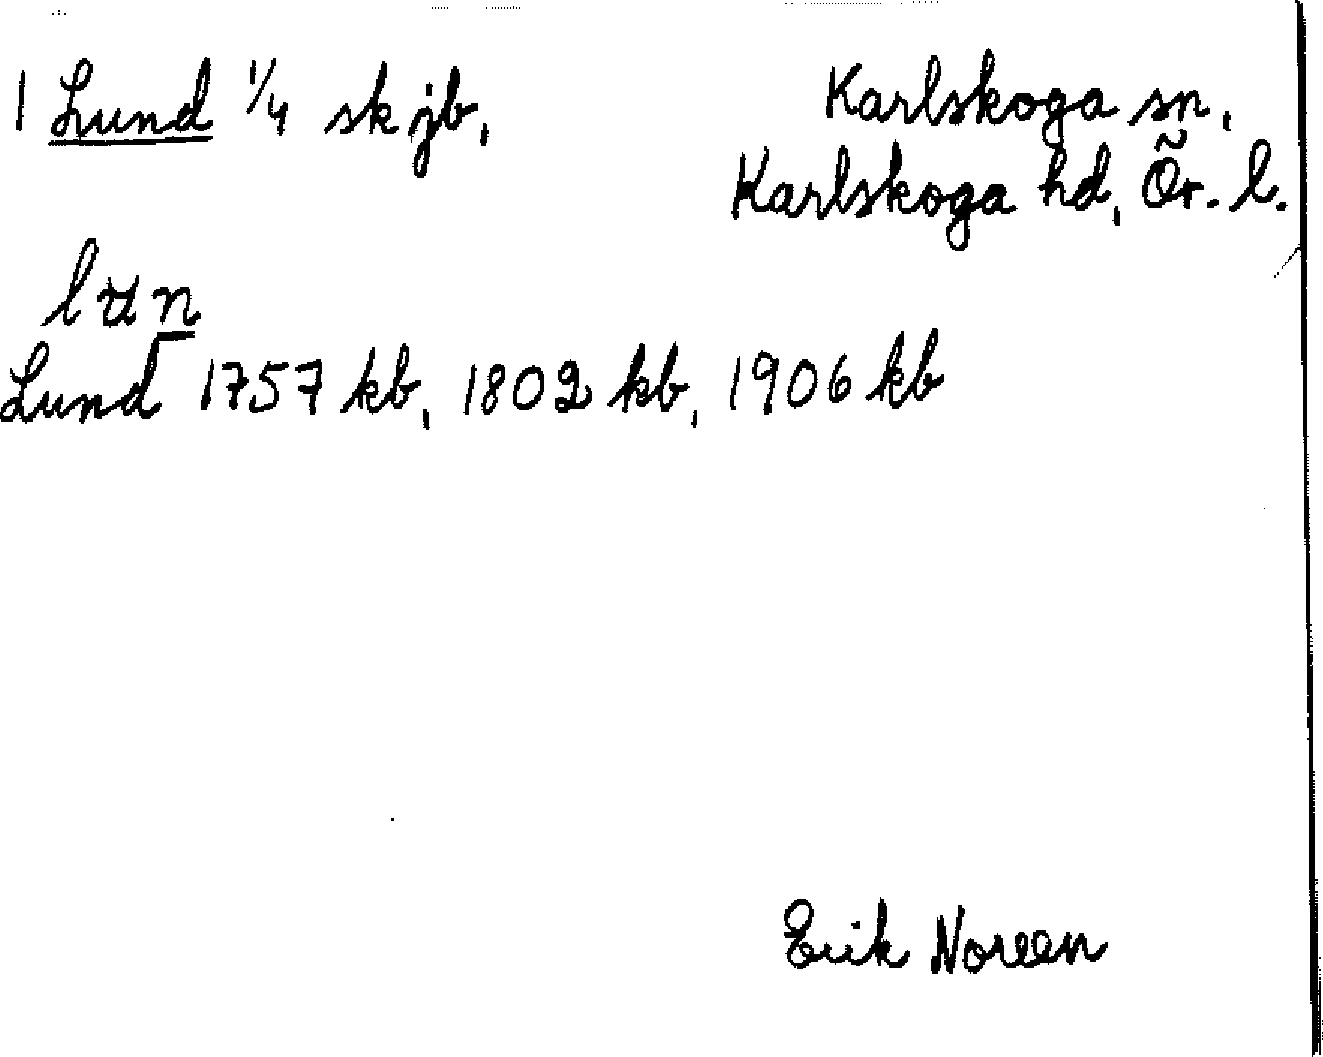 1 Lund 1/4 sk jb,
Karlskoga sn,
Karlskoga hd, Ör. l.
lʉn
Lund 1757 kb, 1802 kb, 1906 kb
Erik Noreen